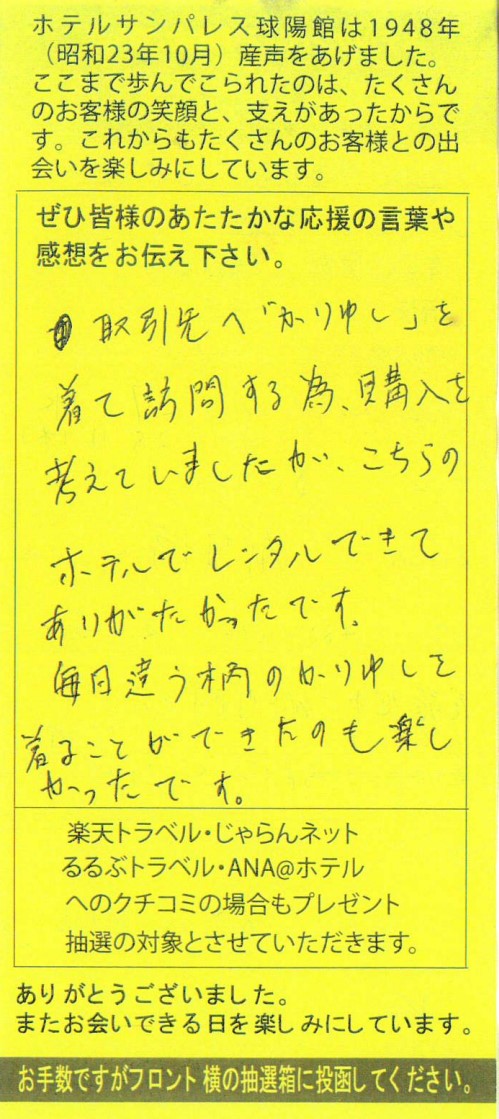 ホテルサンパレス球陽館は1948年
（昭和23年10月）産声をあげました。
ここまで歩んでこられたのは、たくさん
のお客様の笑顔と、支えがあったからで
す。これからもたくさんのお客様との出
会いを楽しみにしています。
ぜひ皆様のあたたかな応援の言葉や
感想をお伝え下さい。
取引先へ「かりゆし」を
着て訪問する為、購入を
考えていましたが、こちらの
ホテルでレンタルできて
ありがたかったです。
毎日違う柄のかりゆしを
着ることができたのも楽し
かったです。
楽天トラベル・じゃらんネット
るるぶトラベル・ANA@ホテル
へのクチコミの場合もプレゼント
抽選の対象とさせていただきます。
ありがとうございました。
またお会いできる日を楽しみにしています。
お手数ですがフロント横の抽選箱に投函してください。